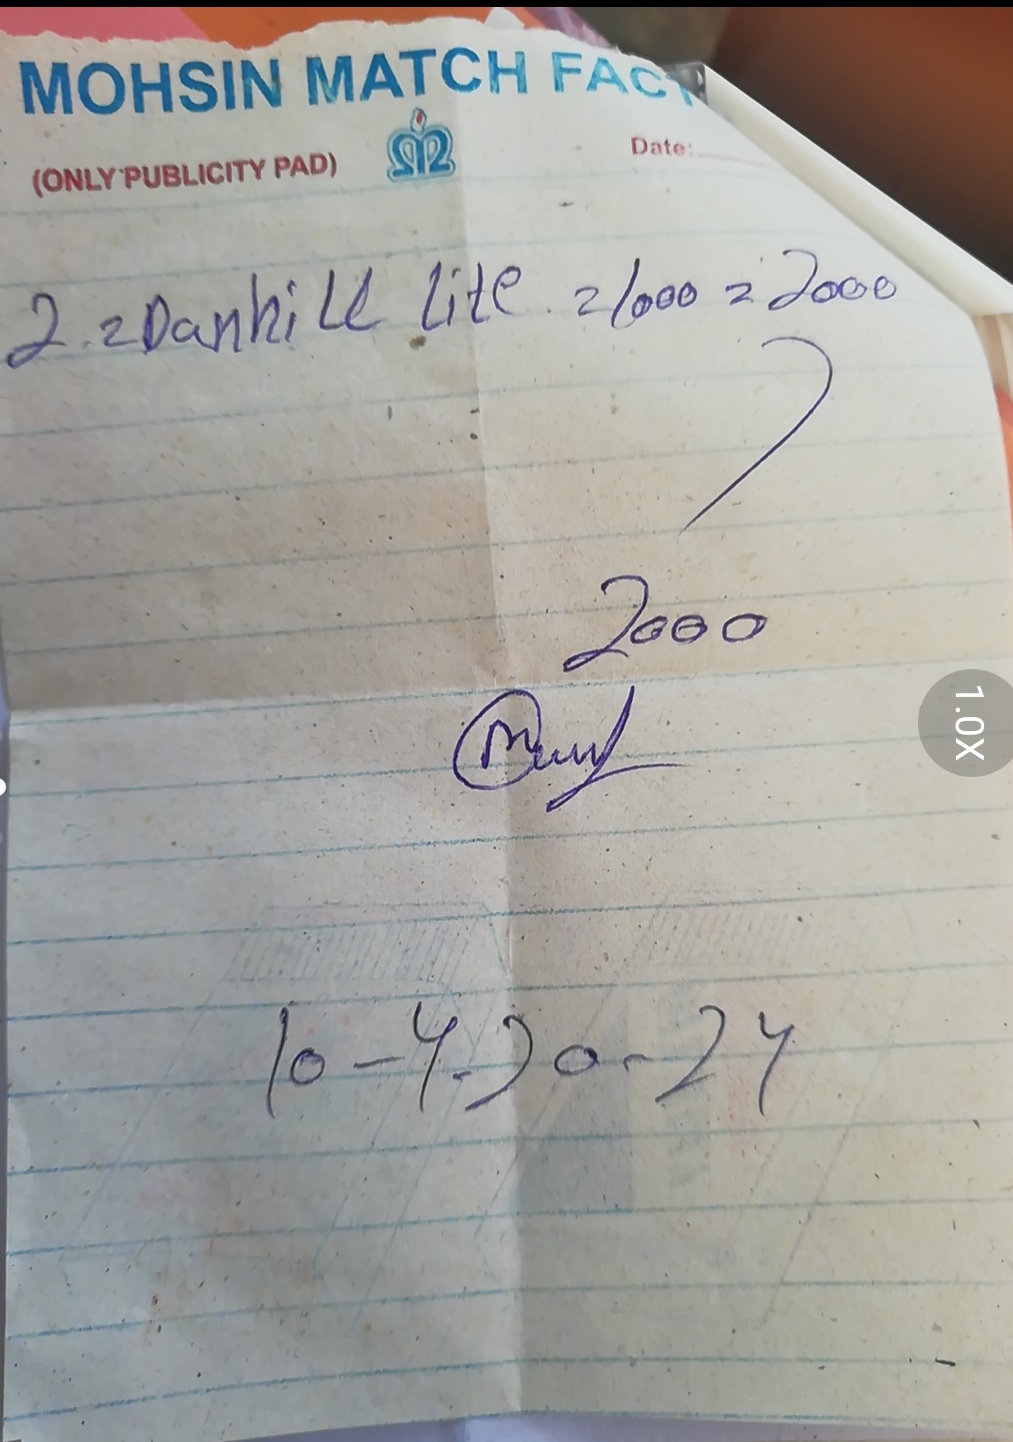 MOHSIN MATCH FACT
(ONLY PUBLICITY PAD)
Date:
2 = Danhill lite = 1000 = 2000
2000
10-4-20-24
1.0X